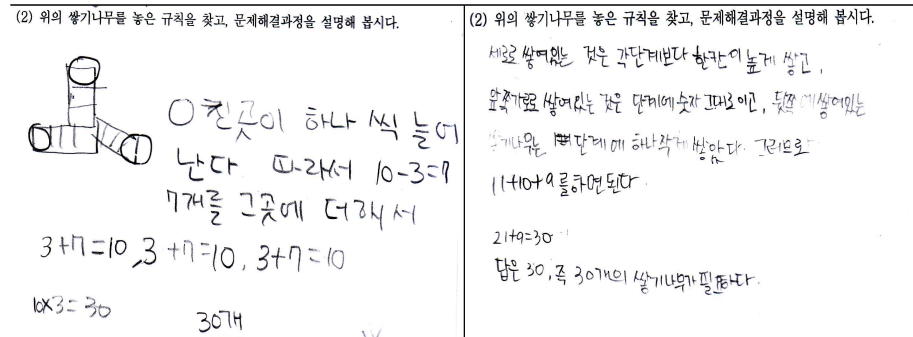 (2) 위의 쌓기나무를 놓은 규칙을 찾고, 문제해결과정을 설명해 봅시다.
○ 친곳이 하나 씩 늘어
난다 따라서 10-3=7
7개를 그곳에 더해서
3+7=10, 3+7=10, 3+7=10
10×3=30
30개
(2) 위의 쌓기나무를 놓은 규칙을 찾고, 문제해결과정을 설명해 봅시다.
세로로 쌓여있는 것은 각단계보다 한칸이 높게 쌓고,
앞쪽가로로 쌓여있는 것은 단계에 숫자 그대로이고, 뒷쪽에 쌓여있는
쌓기나무는 단계에 하나작게 쌓았다. 그러므로
11+10+9를하면된다.
21+9=30
답은 30, 즉 30개의 쌓기나무가 필요하다.